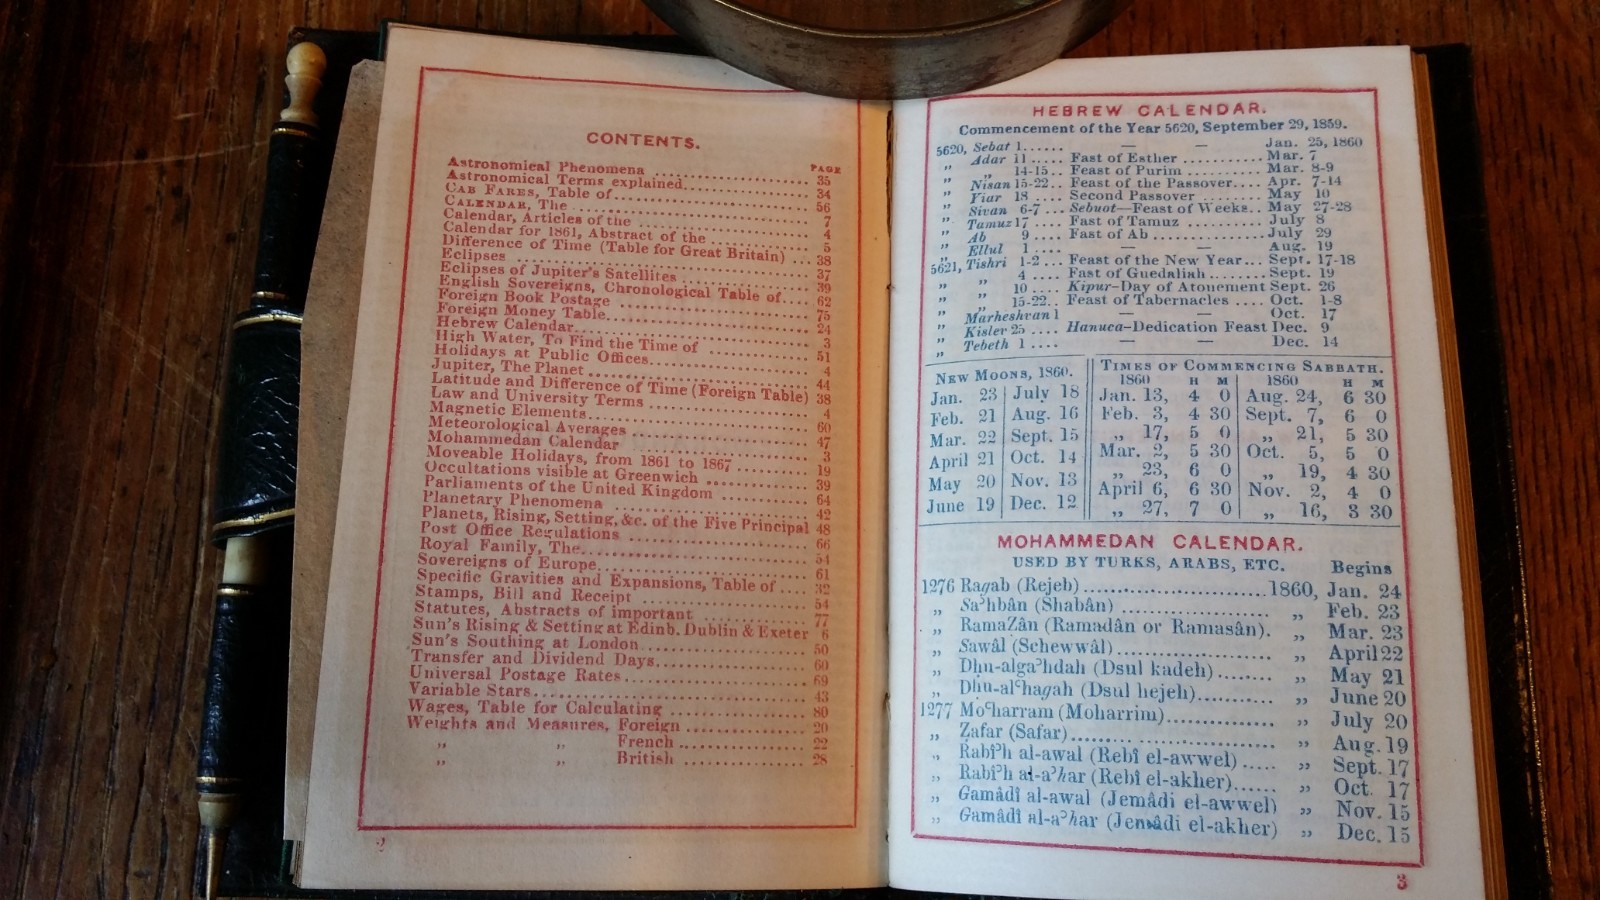 CONTENTS.
PAGE
Astronomical Phenomena .......... 35
Astronomical Terms explained.......... 34
CAB FARES, Table of .......... 56
CALENDAR, The .......... 7
Calendar, Articles of the .......... 4
Calendar for 1861, Abstract of the .......... 5
Difference of Time (Table for Great Britain) ... 38
Eclipses .......... 37
Eclipses of Jupiter's Satellites .......... 39
English Sovereigns, Chronological Table of.... 62
Foreign Book Postage .......... 75
Foreign Money Table.......... 24
Hebrew Calendar.......... 3
High Water, To Find the Time of .......... 51
Holidays at Public Offices.......... 4
Jupiter, The Planet .......... 44
Latitude and Difference of Time (Foreign Table) 38
Law and University Terms .......... 4
Magnetic Elements.......... 60
Meteorological Averages .......... 47
Mohammedan Calendar .......... 3
Moveable Holidays, from 1861 to 1867 .......... 19
Occultations visible at Greenwich .......... 39
Parliaments of the United Kingdom .......... 64
Planetary Phenomena .......... 42
Planets, Rising, Setting, &c. of the Five Principal 48
Post Office Regulations .......... 66
Royal Family, The.......... 54
Sovereigns of Europe.......... 61
Specific Gravities and Expansions, Table of .... 32
Stamps, Bill and Receipt .......... 54
Statutes, Abstracts of important .......... 77
Sun's Rising & Setting at Edinb. Dublin & Exeter 6
Sun's Southing at London.......... 50
Transfer and Dividend Days.......... 60
Universal Postage Rates.......... 69
Variable Stars.......... 43
Wages, Table for Calculating .......... 80
Weights and Measures, Foreign .......... 20
„ „ French .......... 22
„ „ British .......... 28
2
HEBREW CALENDAR.
Commencement of the Year 5620, September 29, 1859.
5620, Sebat 1...... — — Jan. 25, 1860
„ Adar 11 ..... Fast of Esther ........... Mar. 7
„ „ 14-15.. Feast of Purim ........... Mar. 8-9
„ Nisan 15-22.. Feast of the Passover.... Apr. 7-14
„ Yiar 18 .... Second Passover ........ May 10
„ Sivan 6-7 .... Sebuot—Feast of Weeks.. May 27-28
„ Tamuz 17 .... Fast of Tamuz ........... July 8
„ Ab 9 .... Fast of Ab ................ July 29
„ Ellul 1 .... — — Aug. 19
5621, Tishri 1-2 ... Feast of the New Year... Sept. 17-18
„ „ 4 .... Fast of Guedaliah ........ Sept. 19
„ „ 10 .... Kipur-Day of Atonement Sept. 26
„ „ 15-22.. Feast of Tabernacles .... Oct. 1-8
„ Marheshvan 1 — — Oct. 17
„ Kislev 25 .... Hanuca-Dedication Feast Dec. 9
„ Tebeth 1 .... — — Dec. 14
NEW MOONS, 1860.
Jan. 23 July 18
Feb. 21 Aug. 16
Mar. 22 Sept. 15
April 21 Oct. 14
May 20 Nov. 13
June 19 Dec. 12
TIMES OF COMMENCING SABBATH.
1860 H M 1860 H M
Jan. 13, 4 0 Aug. 24, 6 30
Feb. 3, 4 30 Sept. 7, 6 0
„ 17, 5 0 „ 21, 5 30
Mar. 2, 5 30 Oct. 5, 5 0
„ 23, 6 0 „ 19, 4 30
April 6, 6 30 Nov. 2, 4 0
„ 27, 7 0 „ 16, 3 30
MOHAMMEDAN CALENDAR.
USED BY TURKS, ARABS, ETC. Begins
1276 Ragab (Rejeb) .......... 1860, Jan. 24
„ Saʾhbân (Shabân) .......... „ Feb. 23
„ RamaZân (Ramadân or Ramasân). „ Mar. 23
„ Sawâl (Schewwâl) .......... „ April 22
„ Dhu-algaʾhdah (Dsul kadeh) ........ „ May 21
„ Dhu-alʿhagah (Dsul hejeh).......... „ June 20
1277 Moʿharram (Moharrim).......... „ July 20
„ Zafar (Safar).......... „ Aug. 19
„ Rabîʾh al-awal (Rebî el-awwel) ..... „ Sept. 17
„ Rabîʾh al-aʾhar (Rebî el-akher)...... „ Oct. 17
„ Gamâdî al-awal (Jemâdi el-awwel) „ Nov. 15
„ Gamâdî al-aʾhar (Jemâdi el-akher) „ Dec. 15
3